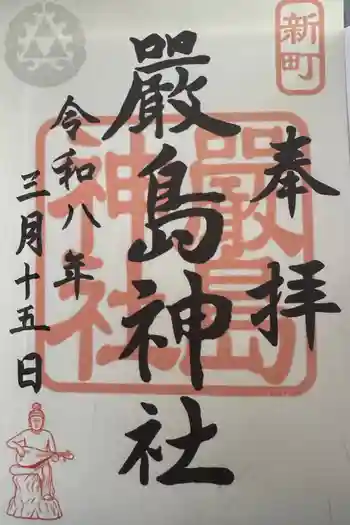 新町
奉拝
嚴島神社
嚴島神社
令和八年
三月十五日